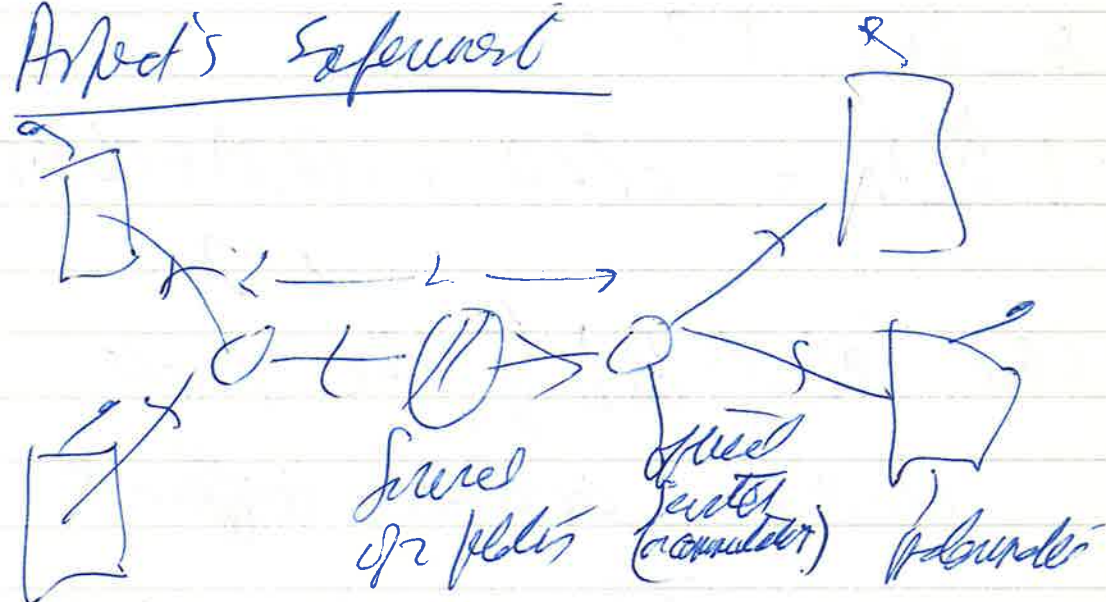 Aspect's Experiment
L
Source
of photons
optical
switch
(commutator)
polarizers